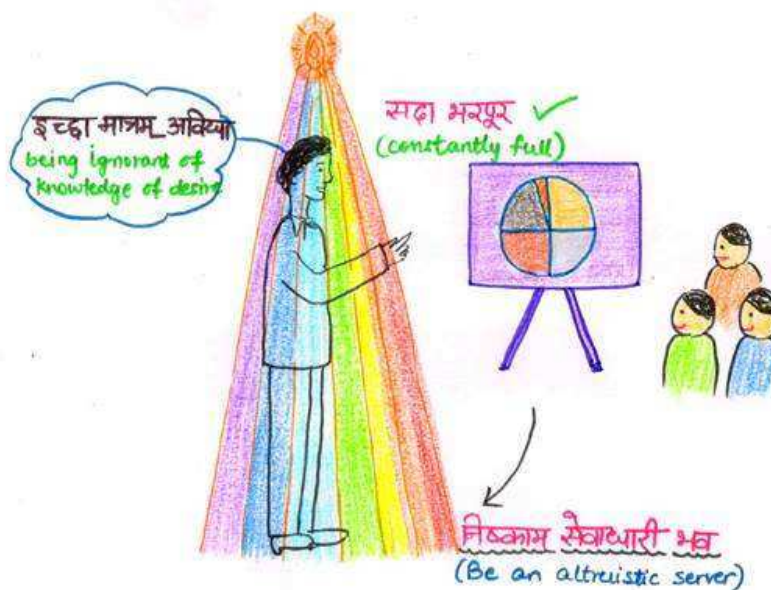 इच्छा मात्रम् अविद्या
being ignorant of
knowledge of desire
सदा भरपूर
(constantly full)
निष्काम सेवाधारी भव
(Be an altruistic server)